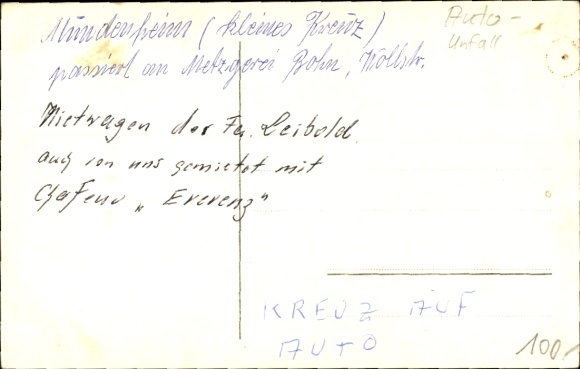 Mundenheim (kleines Kreuz)
passiert an Metzgerei Bohn, Wollstr.
Auto-
Unfall
Mietwagen der Fa. Leibold
auch von uns gemietet mit
"Ererenz"
KREUZ AUF
AUTO
100,